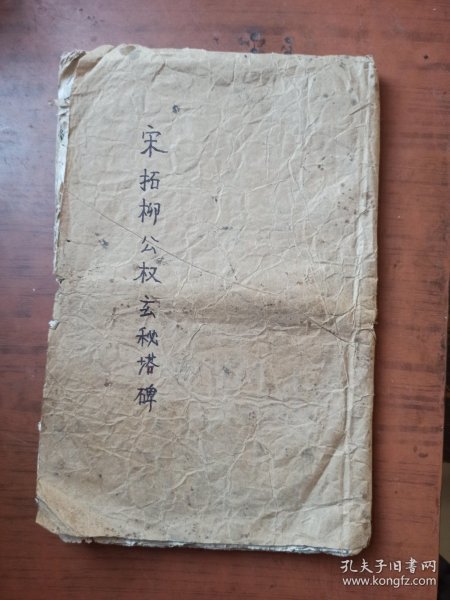 宋拓柳公权玄秘塔碑
孔夫子旧书网
www.kongfz.com